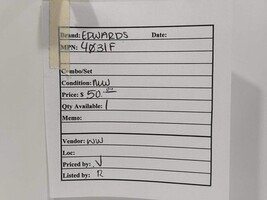 Brand: EDWARDS Date:
MPN: 4031F
Combo/Set
Condition: NW
Price: $ 50.00
Qty Available: 1
Memo:
Vendor: WW
Loc:
Priced by: V
Listed by: R